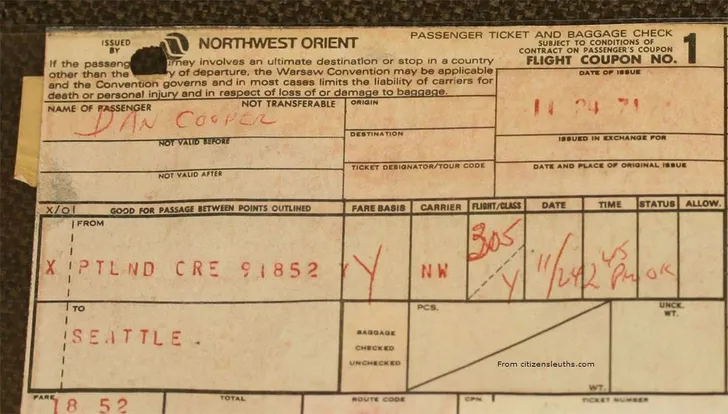 ISSUED BY
NORTHWEST ORIENT
PASSENGER TICKET AND BAGGAGE CHECK
SUBJECT TO CONDITIONS OF
CONTRACT ON PASSENGER'S COUPON
FLIGHT COUPON NO. 1
If the passeng rney involves an ultimate destination or stop in a country
other than the y of departure, the Warsaw Convention may be applicable
and the Convention governs and in most cases limits the liability of carriers for
death or personal injury and in respect of loss of or damage to baggage.
DATE OF ISSUE
11 24 71
NAME OF PASSENGER NOT TRANSFERABLE
DAN COOPER
ORIGIN
DESTINATION
ISSUED IN EXCHANGE FOR
NOT VALID BEFORE
TICKET DESIGNATOR/TOUR CODE
DATE AND PLACE OF ORIGINAL ISSUE
NOT VALID AFTER
X/O GOOD FOR PASSAGE BETWEEN POINTS OUTLINED FARE BASIS CARRIER FLIGHT/CLASS DATE TIME STATUS ALLOW.
FROM
X PTLND CRE 91852 Y NW 305 Y 11/24 2 45 PM OK
TO
SEATTLE.
BAGGAGE
CHECKED
UNCHECKED
PCS.
WT.
UNCK.
WT.
From citizensleuths.com
FARE TOTAL ROUTE CODE CPN. TICKET NUMBER
18 52